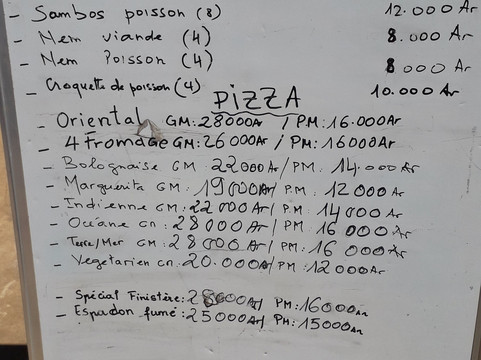 - Sambos poisson (8) 12.000 Ar
- Nem viande (4) 8.000 Ar
- Nem Poisson (4) 8 000 Ar
- Croquette de poisson (4) 10.000 Ar
PIZZA
- Oriental GM: 28000Ar / PM: 16.000Ar
- 4 Fromage GM: 26000Ar / PM: 16000Ar
- Bolognaise GM 22000Ar / PM: 14.000Ar
- Marguerita GM: 19000Ar / PM: 12000Ar
- Indienne GM: 22000Ar / PM: 14000Ar
- Océane GM: 28000Ar / PM: 16000Ar
- Terre/Mer GM: 28000Ar / PM: 16000Ar
- Vegetarien GM: 20.000Ar / PM: 12000Ar
- Spécial Finistère: Ar / PM: 16000Ar
- Espadon fumé: 25000Ar / PM: 15000Ar